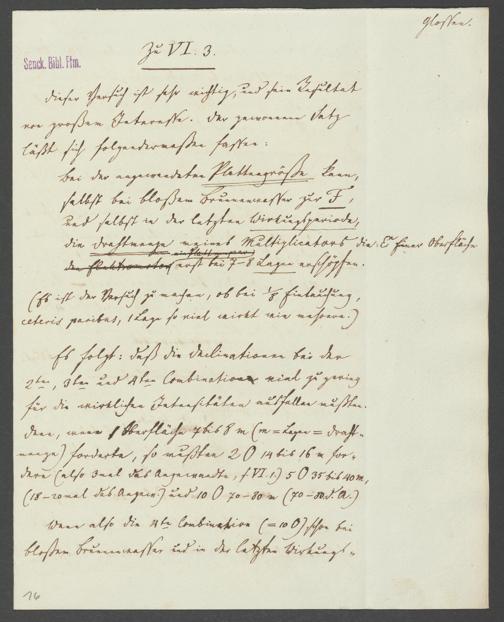 Glossen.
Zu VI. 3.
Senck. Bibl. Ffm.
Dieser Versuch ist sehr wichtig, und sein Resultat
von großem Interesse. Der gewonnene Satz
läßt sich folgendermaßen fassen:
bei der angewendeten Plattengröße kann,
selbst bei bloßem Brunnenwasser zur F,
und selbst in der letzten Wirkungsperiode,
die Drahtmenge meines Multiplicators die E einer Oberfläche
erst bei 7-8 Lagen erschöpfen.
(Es ist der Versuch zu machen, ob bei 1/8 Eintauchung,
ceteris paribus, 1 Lage so viel wirkt wie mehrere.)
Es folgt: daß die Declinationen bei der
2ten, 3ten und 4ten Combination viel zu gering
für die wirklichen Intensitäten ausfallen mußten.
Denn, wenn 1 Oberfläche 7 bis 8 m (m = Lagen = Draht-
menge) forderte, so mußten 2 O 14 bis 16 m for-
dern (also 3mal das Angewandte, f VI. 1) 5 O 35 bis 40 m,
(18-20mal das Angew.) und 10 O 70-80 m (70-80 d. A.)
Wenn also die 4te Combination (= 10 O) schon bei
bloßem Brunnenwasser und in der letzten Wirkungs-
76